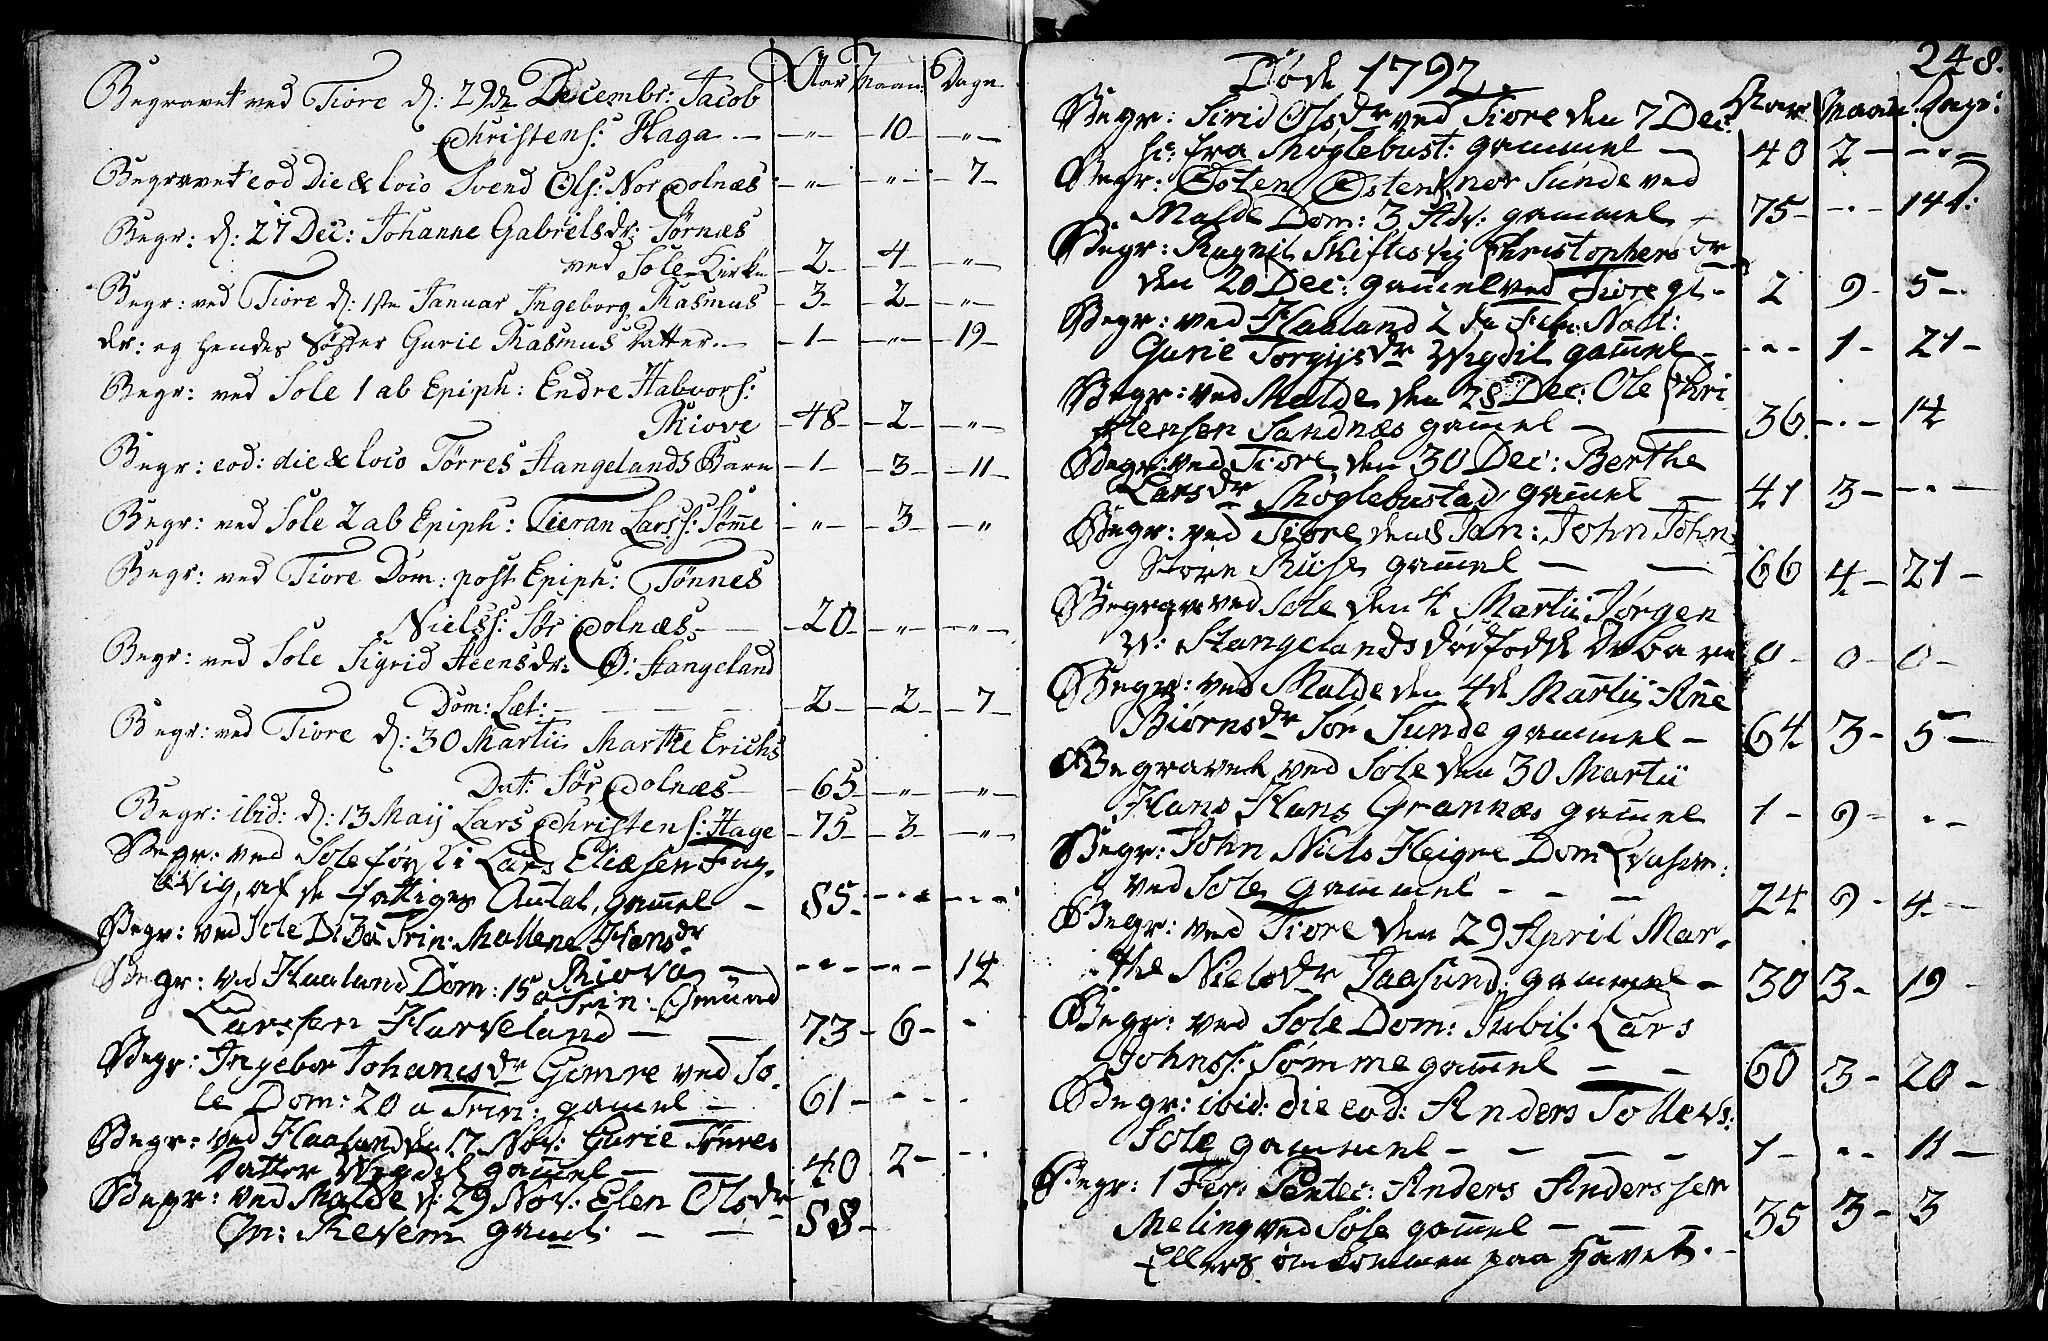 Aar Maan: Dage
Begravet ved Tiore d: 29de Decembr: Jacob
Christens: Haga — " — 10 — " —
Begravet eod die & loco Svend Ols: Nor Dolnæs — " — " — 7 —
Begr: d: 27 Dec: Johanne Gabrielsdr: Sørnæs
ved Sole Kirke — 2 — 4 — " —
Begr: ved Tiore d: 1ste Januar Ingeborg Rasmus — 3 — 2 — " —
dr: og hendes Søster Gurie Rasmus Datter — 1 — " — 19 —
Begr: ved Sole 1 ab Epiph: Endre Halvors:
Riove — 48 — 2 — " —
Begr: eod: die & loco Tørres Stangelands Barn — 1 — 3 — 11 —
Begr: ved Sole 2 ab Epiph: Tieran Larss: Sø̄me — " — 3 — "
Begr: ved Tiore Dom: post Epiph: Tønnes
Nielss: Sør Colnæs — 20 — " — " —
Begr: ved Sole Sigrid Steensdr: Ø: Stangeland
Dom: Læt: — 2 — 2 — 7 —
Begr: ved Tiore d: 30 Martii Marthe Erichs
Dat: Sør Colnæs — 65 — " — " —
Begr: ibid: d: 13 Maij Lars Christens: Hage — 75 — 3 — " —
Begr: ved Sole Lars Eliasen Fug
vig, af de fattiges Antal, gam̄el — 85 - - -
Begr: ved Sole D: 3 a Trin: Mallene Hansdr
Riove — - - - - 14
Begr: ved Haaland Dom: 15 a Trin: Gmund
Larssen Harveland — 73 - 6 - -
Begr: Ingebor Johanesdr Gimre ved So-
le Dom: 20 a Trin: gam̄el — 61 - - -
Begr: ved Haaland den 17 Nov: Gurie Tørres
Datter Wigdel gam̄el — 40 2 - - -
Begr: ved Malde d: 29 Nov: Elen Olsdr
Revem gam̄l: — 58 -
Døde 1792. 248.
Aar Maan: Dage:
Begr: Sirid Olsdr ved Tiore den 7 Dec:
fra Skoglebust: gammel — 40 2 - - -
Begr: Østen Østens: nor Sunde ved
Malde Dom: 3 Adv: gammel — 75 - - - 14d:
Begr: Ragnil Skiftesvig Christophersdr
den 20 Dec: gam̄el ved Tiore gl - 2 9 - 5 -
Begr: ved Haaland 2 de Feb: Nat:
Gurie Torgijsdr Wigdil gam̄el — - - - 1 - 21 -
Begr: ved Malde den 28 Dec: Ole Chri
stensen Sandnæs gam̄el — 36 - - - 14
Begr: ved Tiore den 30 Dec: Berthe
Larsdr Skoglebustad gam̄el — 41 3 - - - -
Begr: ved Tiore den 8 Jan: John John
Store Ruse gam̄el — 66 4 - 21 -
Begrav ved Sole den 4 Martii Jørgen
N: Stangelands dødfødde Dr barn 0 - 0 - 0 -
Begr: ved Malde den 4de Martii An̄e
Biørnsdr Sør Sunde gammel — 64 3 - 5 -
Begravet ved Sole den 30 Martii
Hans Hans Grannæs gam̄el 1 - 9 - - -
Begr: John Niels Heigre Dom Qvasim:
ved Sole gammel — 24 9 - 4 -
Begr: ved Tiore den 29 April Mar-
the Nielsdr Jaasund gammel — 30 3 - 19 -
Begr: ved Sole Dom: Jubil: Lars
Johnss: Sømme gam̄el — 60 3 - 20 -
Begr: ibid: die eod: Anders Tollevs:
Sole gammel — 1 - - - 11 -
Begr: 1 Fer: Pentec: Anders Anderssen
Meling ved Sole gam̄el — 35 3 - 3
Ellers omkommen paa Havet.